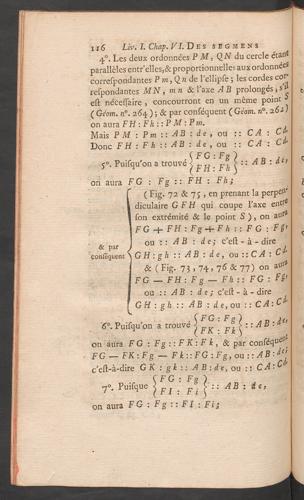 116 Liv. I. Chap. VI. DES SEGMENS
4°. Les deux ordonnées PM, QN du cercle étant
parallèles entr'elles, & proportionnelles aux ordonnées
correspondantes Pm, Qn de l'ellipse; les cordes cor-
respondantes MN, mn & l'axe AB prolongés, s'il
est nécessaire, concourront en un même point S
(Géom. n°. 264); & par conséquent (Géom. n°. 262)
on aura FH : Fh :: PM : Pm.
Mais PM : Pm :: AB : de, ou :: CA : Cd.
Donc FH : Fh :: AB : de, ou :: CA : Cd.
5°. Puisqu'on a trouvé { FG : Fg
FH : Fh } :: AB : de,
on aura FG : Fg :: FH : Fh;
& par
conséquent
{ (Fig. 72 & 75, en prenant la perpen-
diculaire GFH qui coupe l'axe entre
son extrémité & le point S), on aura
FG + FH : Fg + Fh :: FG : Fg,
ou :: AB : de; c'est-à-dire
GH : gh :: AB : de, ou :: CA : Cd.
& (Fig. 73, 74, 76 & 77) on aura
FG — FH : Fg — Fh :: FG : Fg,
ou :: AB : de; c'est-à-dire
GH : gh :: AB : de, ou :: CA : Cd.
6°. Puisqu'on a trouvé { FG : Fg
FK : Fk } :: AB : de,
on aura FG : Fg :: FK : Fk, & par conséquent
FG — FK : Fg — Fk :: FG : Fg, ou :: AB : de;
c'est-à-dire GK : gk :: AB : de, ou :: CA : Cd.
7°. Puisque { FG : Fg
FI : Fi } :: AB : de,
on aura FG : Fg :: FI : Fi;